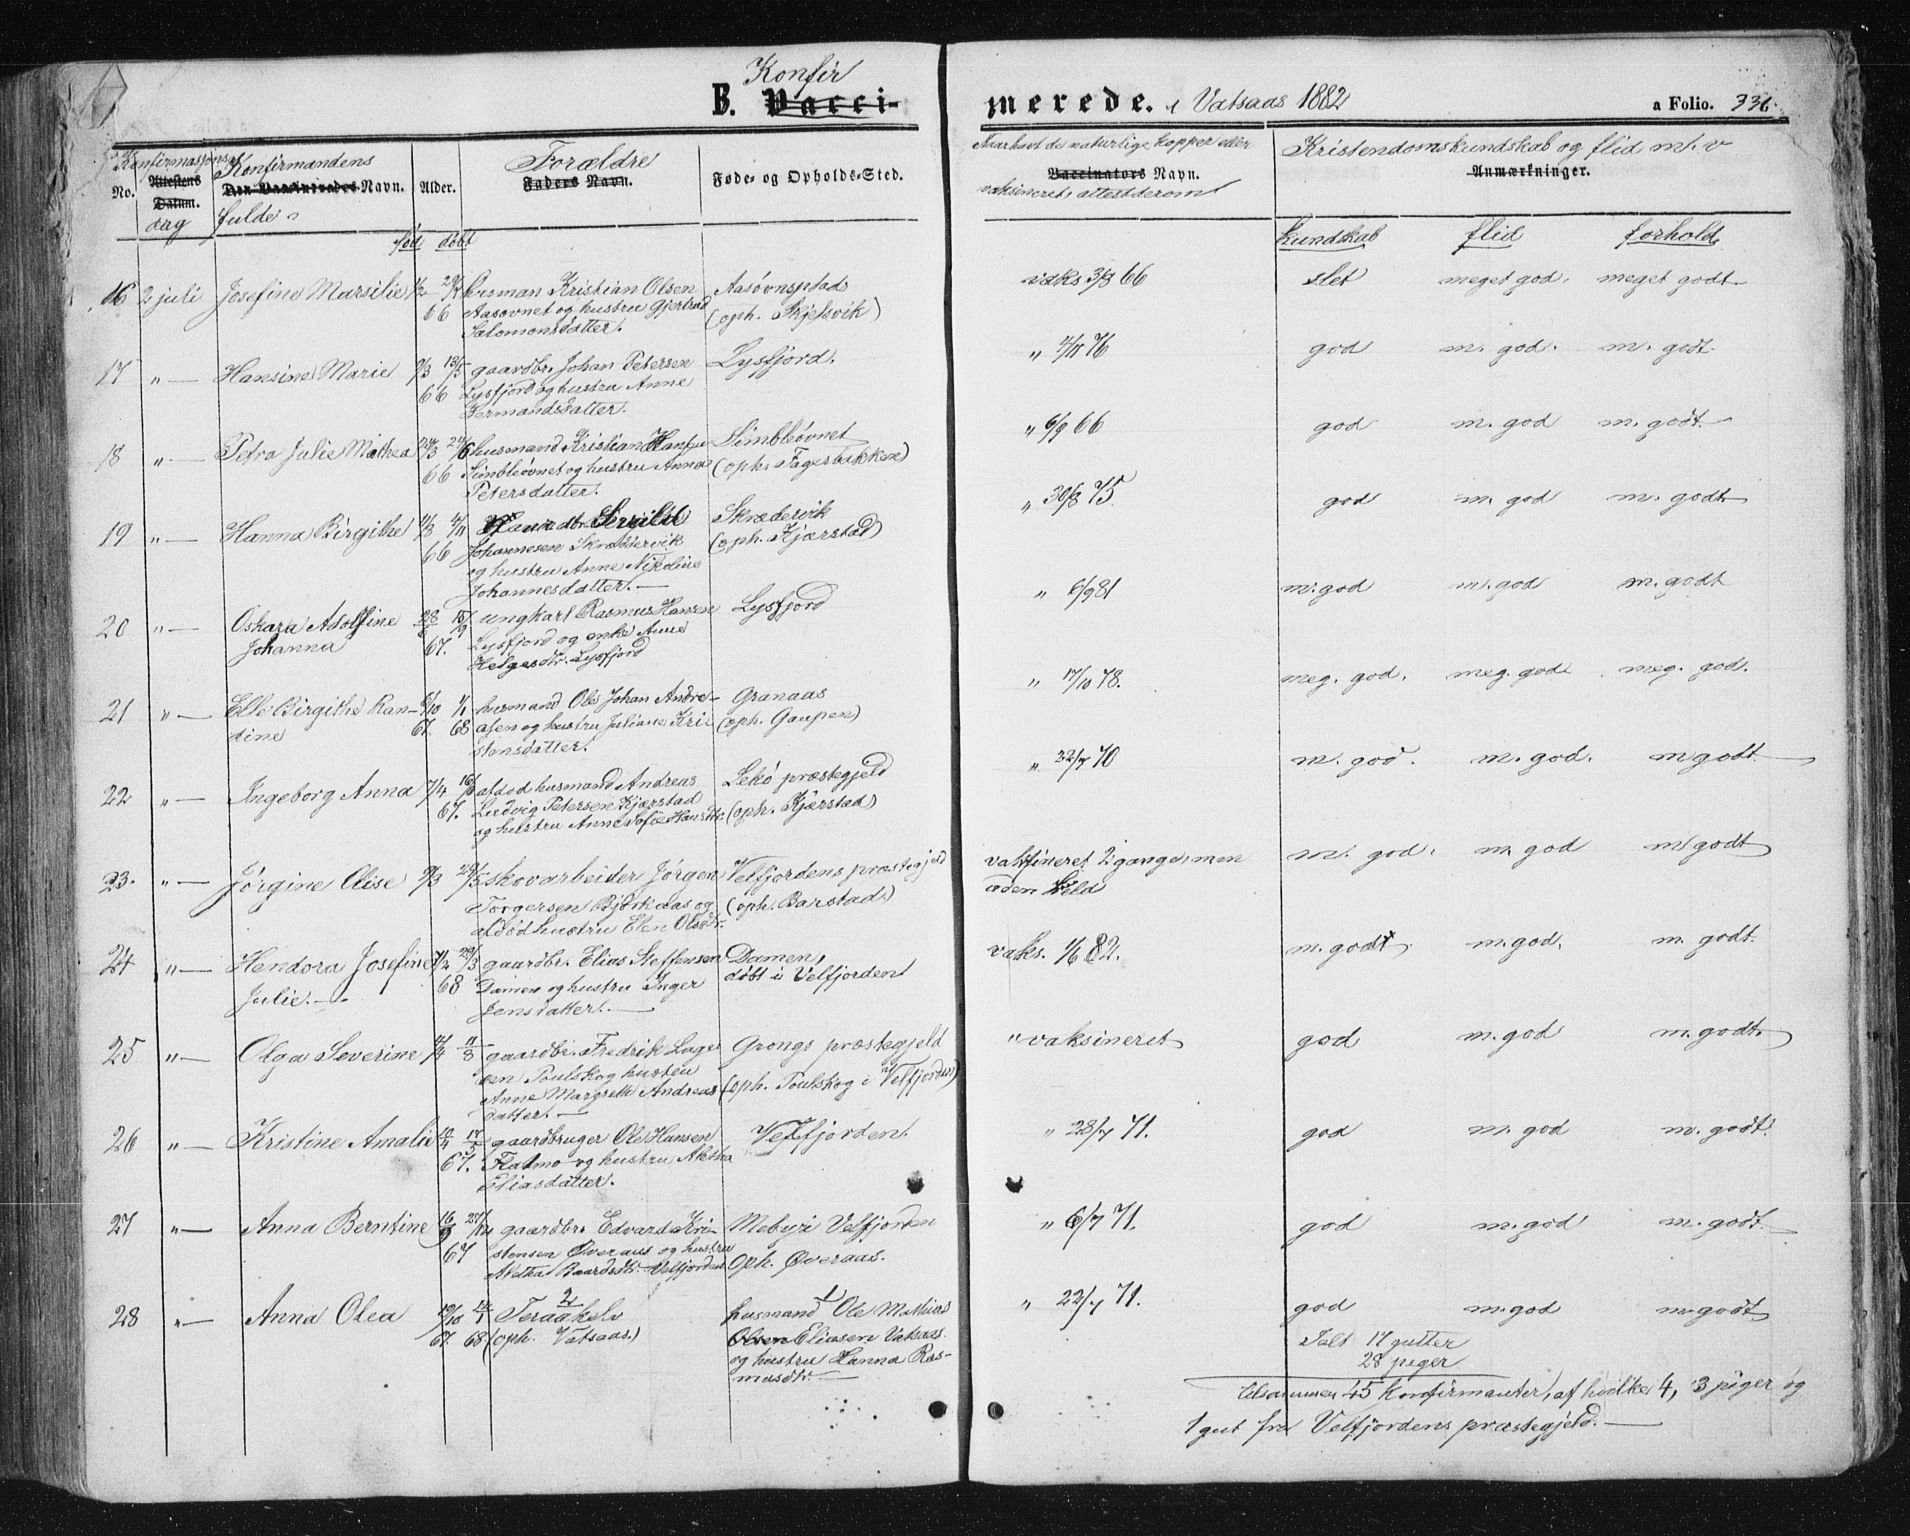 Konfir
B. Vacci-
merede. i Vatsaas 1882
a Folio. 336.
Konfirmasjons
No. Attestens Datum. dag
Konfirmandens
Den Vaccineredes Navn.
fulde
Alder.
født døbt
Forældre
Faders Navn.
Føde- og Opholds-Sted.
Naar havt de naturlige kopper eller
Vaccinators Navn.
vaksineret, attest derom
Kristendomskundskab og flid m. v
Anmærkninger.
kundskab flid forhold
16 2 juli Josefine Marsilie 66 Kristian Olsen
Aasovnet og hustru Gjertrud
Salomonsdatter.
Aasøvnsplads
(oph. Skjelsvik)
vaks 3/8 66 slet meget god. meget godt
17 " — Hansine Marie 9/3 13/5 66 gaardbr. Johan Petersen
Lysfjord og hustru Anne
Hermandsdatter.
Lysfjord.
" 4/11 76 god m. god. m. godt
18 " — Petra Julie Mathea 24/3 24/6 66 husmand Kristian Hansen
Simbleøvnet og hustru Anna
Petersdatter.
Simbleøvnet
(oph. Fagerbakken)
" 6/9 66 god m. god m. godt
19 " — Hanna Birgithe 4/11 66
Johannesen Skrædervik
og hustru Anne Nikoline
Johannesdatter.
Skrædervik
(oph. Kjærstad)
" 30/8 75. god m. god m. godt
20 " — Oskara Adolfine
Johanna
15/9 67. ungkarl Rasmus Hansen
Lysfjord og enke Anne
Helgesdtr. Lysfjord
Lysfjord
" 6/9 81 m. god m. god m. godt
21 " — Elle Birgithe Ran-
dine
6/10 67. 1/1 68 husmand Ole Johan Andre-
asen og hustru Juliane Kri
stensdatter.
Granaas
(oph. Gaupen)
" 17/10 78. meg. god. meg. god. meg. god.
22 " — Ingeborg Anna 7/4 16/6 67. afdød husmand Andreas
Ludvig Petersen Kjærstad
og hustru Anne Sofie Hansdtr.
Lekø præstegjeld
(oph. Kjærstad)
" 22/7 70 m. god. m. god. m godt
23. " — Jørgine Olise 9/3 29/5 skovarbeider Jørgen
Torgersen Bjørkaas og
afdød hustru Elen Olsdtr.
Velfjordens præstegjeld
(oph. Barstad.)
vaksineret 2 gange, men
uden held
m. god. m god m godt
24 " — Hendora Josefine
Julie.
7/2 29/3 68 gaardbr. Elias Steffensen
Damen og hustru Inger
Jensdatter.
Damen,
døbt i Velfjorden
vaks. 1/6 82. m. godt m. god. m. godt.
25 " — Olga Severine 11/3 gaardbr. Fredrik Lage
sen Toulskog hustru
Anne Margreth Andreas
datter.
Grongs præstegjeld
(oph. Toulskog i Velfjorden)
" vaksineret god m. god m. godt.
26 " — Kristine Amalie 67. gaardbruger Ole Hansen
Flatmo og hustru Aletha
Eliasdatter.
Velfjorden.
" 28/7 71. god m. god m. godt.
27 " — Anna Berntine 16/9 67 27/12 gaardbr. Edvard Kri
stensen Øveraas og hustru
Aletha Baardsdtr. Velfjorden
Mebyi Velfjorden
oph. Øveraas.
" 6/7 71. god m. god m. godt.
28 " — Anna Olea 19/10 67. 12/1 68 2
Teraakelv
(oph. Vatsaas.)
1
husmand Ole Mathias
Olsen Eliasen Vatsaas.
og hustru Hanna Ras-
musdtr.
" 22/7 71. god m. god m. godt
Ialt 17 gutter
28 piger
tilsammen 45 konfirmanter, af hvilke 4, 3 piger og
1 gut fra Velfjordens præstegjeld.